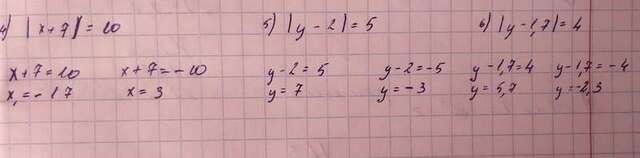 4) |x+7|=10 5) |y-2|=5 6) |y-1,7|=4
x+7=10 x+7=-10 y-2=5 y-2=-5 y-1,7=4 y-1,7=-4
x,=-17 x=3 y=7 y=-3 y=5,7 y=-2,3